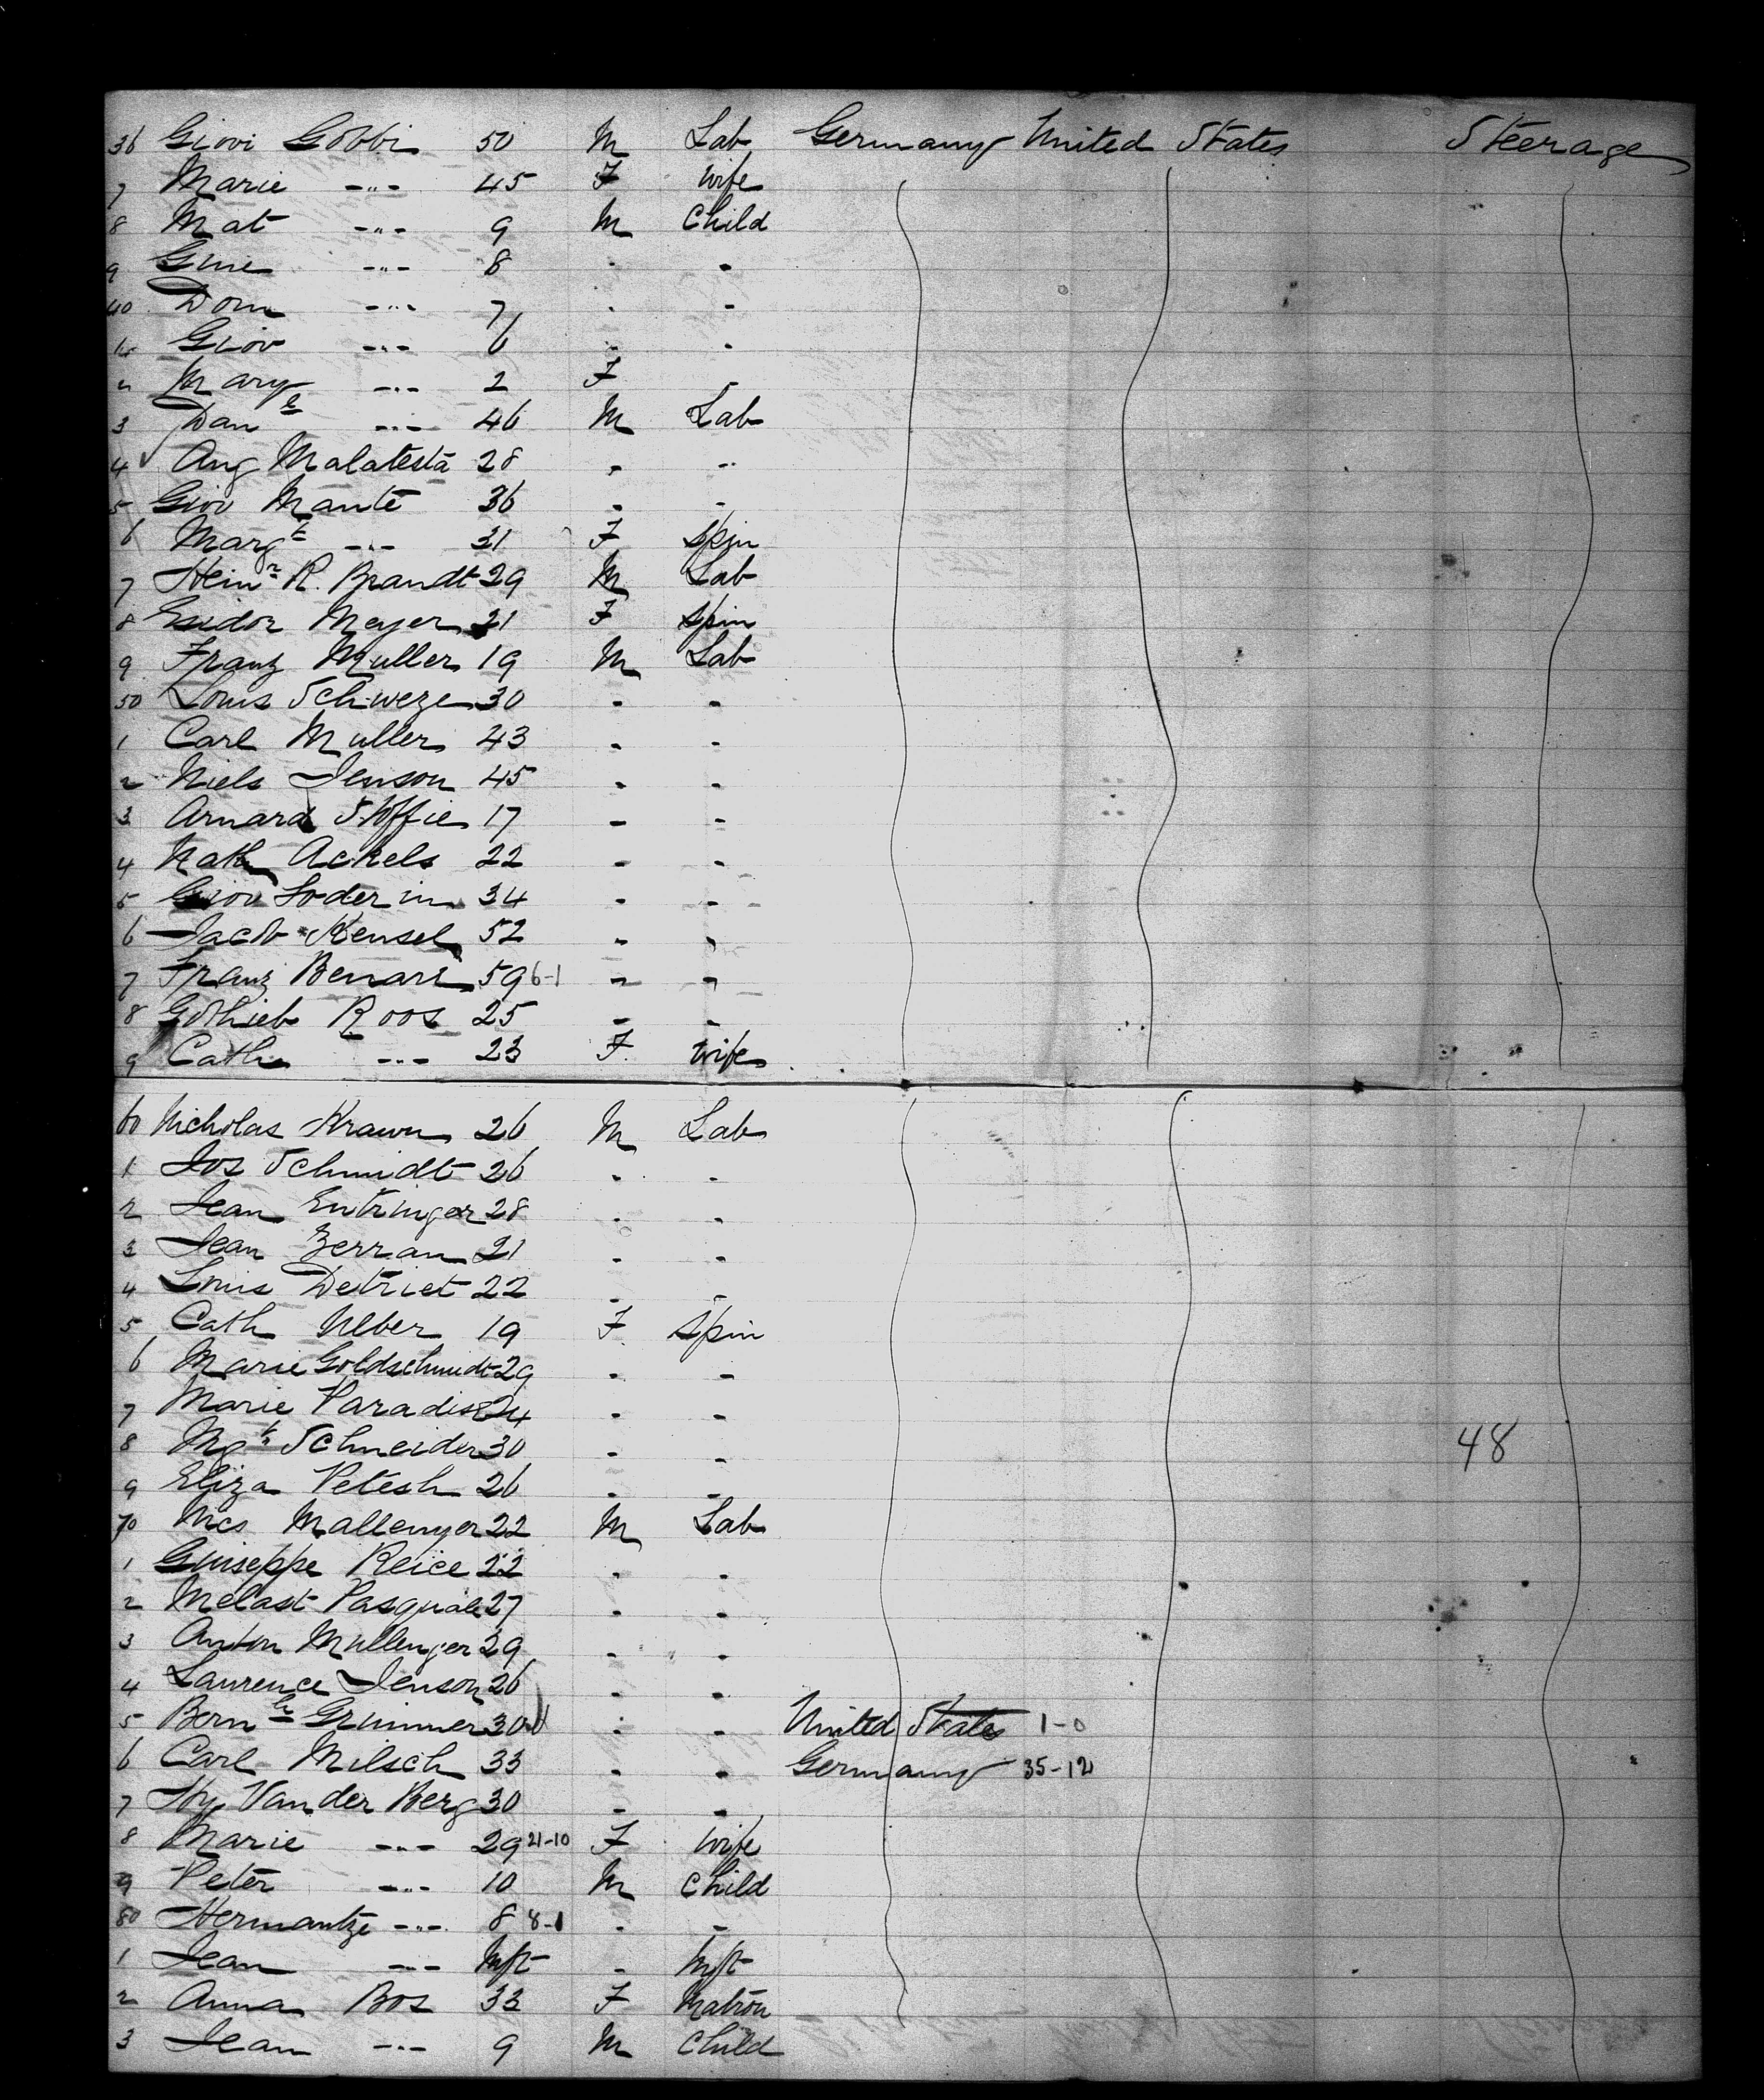 36 Giovi Gobbi 50 M Lab Germany United States Steerage
7 Marie -"- 45 F wife
8 Mat -"- 9 M Child
9 Guie -"- 8 " "
40 Dom -"- 7 " "
Giov -"- 6 " "
2 Mary -"- 2 F "
3 Danl -"- 46 M Lab
4 Ang Malatesta 28 " "
5 Giov Mante 36 " "
6 Margt -"- 31 F Spin
7 Heinr R. Brandt 29 M Lab
8 Esidor Meyer 21 F Spin
9 Franz Muller 19 M Lab
50 Louis Schweze 30 " "
1 Carl Muller 43 " "
2 Niels Jenson 45 " "
3 Arnard Stoffie 17 " "
4 Nath Ackels 22 " "
5 Giov Loderin 34 " "
6 Jacob Kensel 52 " "
7 Franz Benari 59 6-1 " "
8 Gothieb Roos 25 " "
9 Cath -"- 23 F wife
60 Nicholas Krawn 26 M Lab
1 Jos Schmidt 26 " "
2 Jean Entringer 28 " "
3 Jean Zerran 21 " "
4 Louis Detriet 22 " "
5 Cath Ulber 19 F Spin
6 Marie Goldschmidt 29 " "
7 Marie Paradise 24 " "
8 Mgt Schneider 30 " " 48
9 Eliza Petesh 26 " "
70 Nics Mallenger 22 M Lab
1 Guiseppe Reice 22 " "
2 Melast Pasquale 27 " "
3 Anton Mullenger 29 " "
4 Laurence Jenson 26 " "
5 Bernh Grimmer 30 " " United States 1-0
6 Carl Milsch 33 " " Germany 35-12
7 Hy Van der Berg 30 " "
8 Marie -"- 29 21-10 F wife
9 Peter -"- 10 M Child
80 Hermantze -"- 8 8-1 " "
1 Jean -"- Inft " Inft
2 Anna Bos 33 F Matron
3 Jean -"- 9 M Child